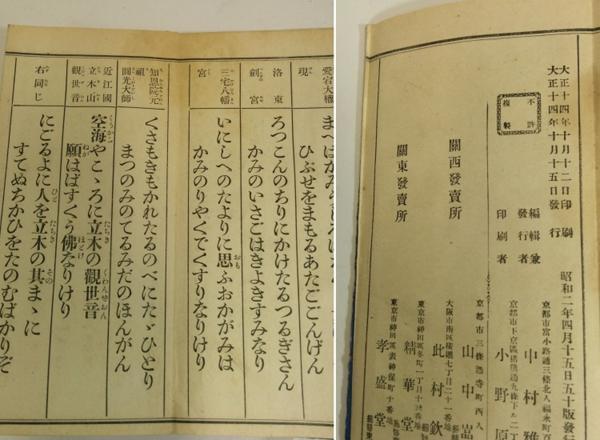 愛宕大権
現
ひぶせをまもるあたごごんげん
洛東
劍宮
ろつこんのちりにかけたるつるぎさん
かみのいさごはきよきすみなり
三宅八幡
宮
いにしへのたよりに思ふおかがみは
かみのりやくでくすりなりけり
知恩院元
祖
圓光大師
くさもきもかれたるのべにたゞひとり
まつのみのてるみだのほんがん
近江國
立木山
觀世音
空海やこゝろに立木の觀世音
願はばすくう佛なりけり
右同じ
にごるよに人を立木の其まゝに
すてぬちかひをたのむばかりぞ
大正十四年十月十二日印刷
大正十四年十月十五日發行
昭和二年四月十五日五十版發行
不許
複製
編輯兼
發行者
京都市富小路通三條北入福永町
中村雅
印刷者
京都市下京區
小野原
關西發賣所
京都市三條
山中嵓
大阪市南區
此村欽
關東發賣所
東京市神田區
精華堂
東京市神田區表神保町十番地
孝盛堂